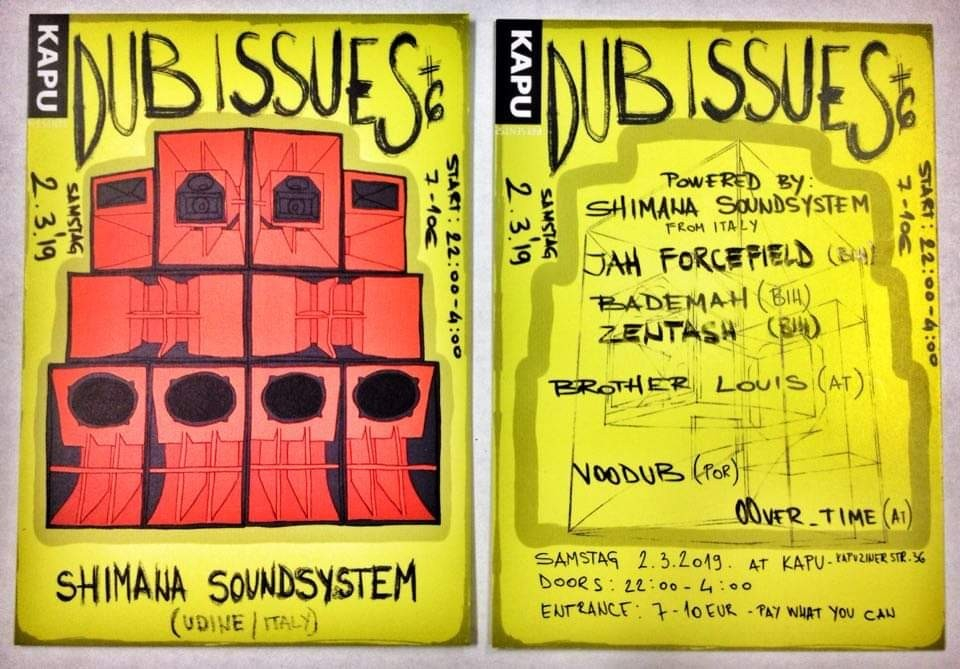 KAPU
DUB ISSUES #6
SAMSTAG
2.3.'19
START: 22:00-4:00
7-10€
SHIMANA SOUNDSYSTEM
(UDINE/ITALY)
KAPU
PRESENTS:
DUB ISSUES #6
SAMSTAG
2.3.'19
START: 22:00-4:00
7-10€
POWERED BY:
SHIMANA SOUNDSYSTEM
FROM ITALY
JAH FORCEFIELD (BIH)
BADEMAH (BIH)
ZENTASH (BIH)
BROTHER LOUIS (AT)
VOODUB (POR)
OOVER_TIME (AT)
SAMSTAG 2.3.2019. AT KAPU - KAPUZINERSTR. 36
DOORS: 22:00-4:00
ENTRANCE: 7-10 EUR - PAY WHAT YOU CAN